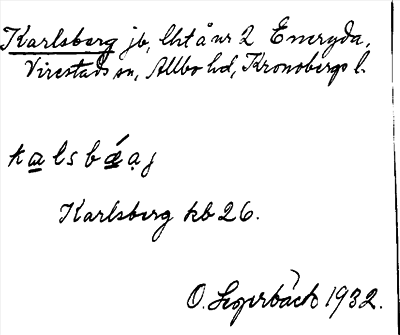 Karlsberg jb, lht å nr 2 Emeryda,
Virestads sn, Allbo hd, Kronobergs l.
kalsbǽạj
Karlsberg kb 26.
O. Segerbäck 1932.